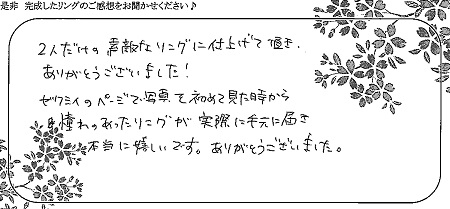 是非 完成したリングのご感想をお聞かせください♪
2人だけの素敵なリングに仕上げて頂き、
ありがとうございました!
ゼクシィのページで写真を初めて見た時から
憧れのあったリングが実際に手元に届き
本当に嬉しいです。ありがとうございました。